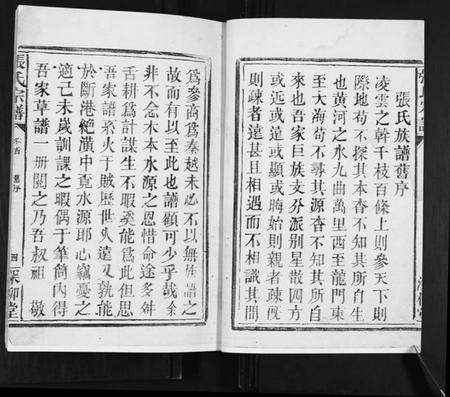 張氏族譜舊序
凌雲之幹千枝百條上則參天下則
際地苟不探其本杳不知其所自生
也黃河之水九曲萬里西至龍門東
至大海苟不尋其源杳不知其所自
來也吾家巨族支分派別星散四方
或近或遠或顯或晦始則親者疎
則疎者遠甚且相遇而不相識其間
爲參商爲秦越未必不以無族譜之
故而有以至此也譜顧可少乎哉余
非不念木本水源之恩惜命途多舛
舌耕爲計謀生不暇奚能爲此但思
吾家譜系火于賊歷世久遠又孰能
於斷港絶潢中覓水源耶心竊憂之
適己未歲訓課之暇偶于筆筒內得
吾家草譜一冊閱之乃吾叔祖 敬
張氏宗譜
卷首
舊序
四